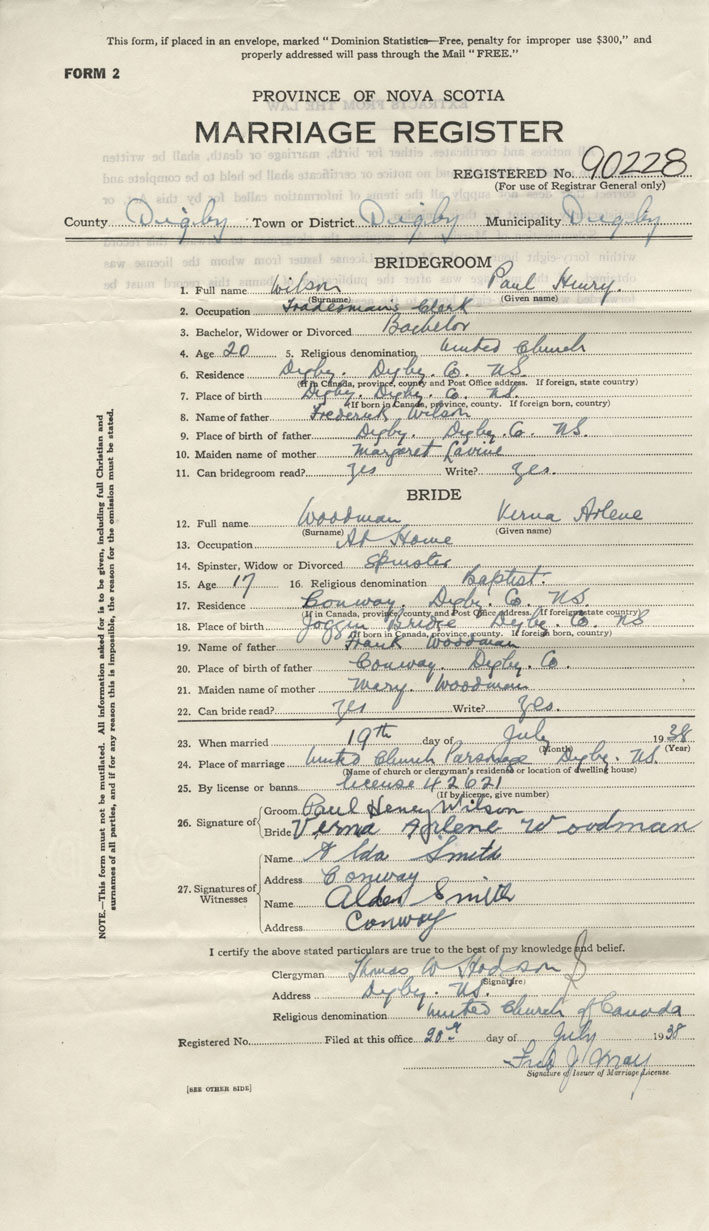 This form, if placed in an envelope, marked "Dominion Statistics—Free, penalty for improper use $300," and
properly addressed will pass through the Mail "FREE."
FORM 2
PROVINCE OF NOVA SCOTIA
MARRIAGE REGISTER
REGISTERED No. 90228
(For use of Registrar General only)
County Digby Town or District Digby Municipality Digby
BRIDEGROOM
1. Full name Wilson Paul Henry.
(Surname) (Given name)
2. Occupation Tradesman's Clerk
3. Bachelor, Widower or Divorced Bachelor
4. Age 20 5. Religious denomination United Church
6. Residence Digby. Digby Co. NS.
(If in Canada, province, county and Post Office address. If foreign, state country)
7. Place of birth Digby. Digby. Co. NS.
(If born in Canada, province, county. If foreign born, country)
8. Name of father Frederick Wilson
9. Place of birth of father Digby. Digby. Co. NS.
10. Maiden name of mother Margaret
11. Can bridegroom read? yes Write? yes.
BRIDE
12. Full name Woodman Verna Arlene
(Surname) (Given name)
13. Occupation At Home
14. Spinster, Widow or Divorced Spinster
15. Age 17 16. Religious denomination Baptist.
17. Residence Conway. Digby. Co. NS.
(If in Canada, province, county and Post Office address. If foreign state country)
18. Place of birth Joggin Bridge Digby. Co. NS
(If born in Canada, province, county. If foreign born, country)
19. Name of father Frank Woodman
20. Place of birth of father Conway. Digby. Co.
21. Maiden name of mother Mary. Woodman
22. Can bride read? yes Write? yes.
23. When married 19th day of July 1938
(Month) (Year)
24. Place of marriage United Church Parsonage Digby. NS.
(Name of church or clergyman's residence or location of dwelling house)
25. By license or banns license 42621
(If by license, give number)
26. Signature of Groom Paul Henry Wilson
Bride Verna Arlene Woodman
27. Signatures of Witnesses
Name Alda Smith
Address Conway
Name Alden Smith
Address Conway
NOTE.—This form must not be mutilated. All information asked for is to be given, including full Christian and
surnames of all parties, and if for any reason this is impossible, the reason for the omission must be stated.
I certify the above stated particulars are true to the best of my knowledge and belief.
Clergyman Thomas W Hodgson
(Signature)
Address Digby. NS.
Religious denomination United Church of Canada
Registered No. Filed at this office 20th day of July 1938
Fred J May
Signature of Issuer of Marriage License
[SEE OTHER SIDE]